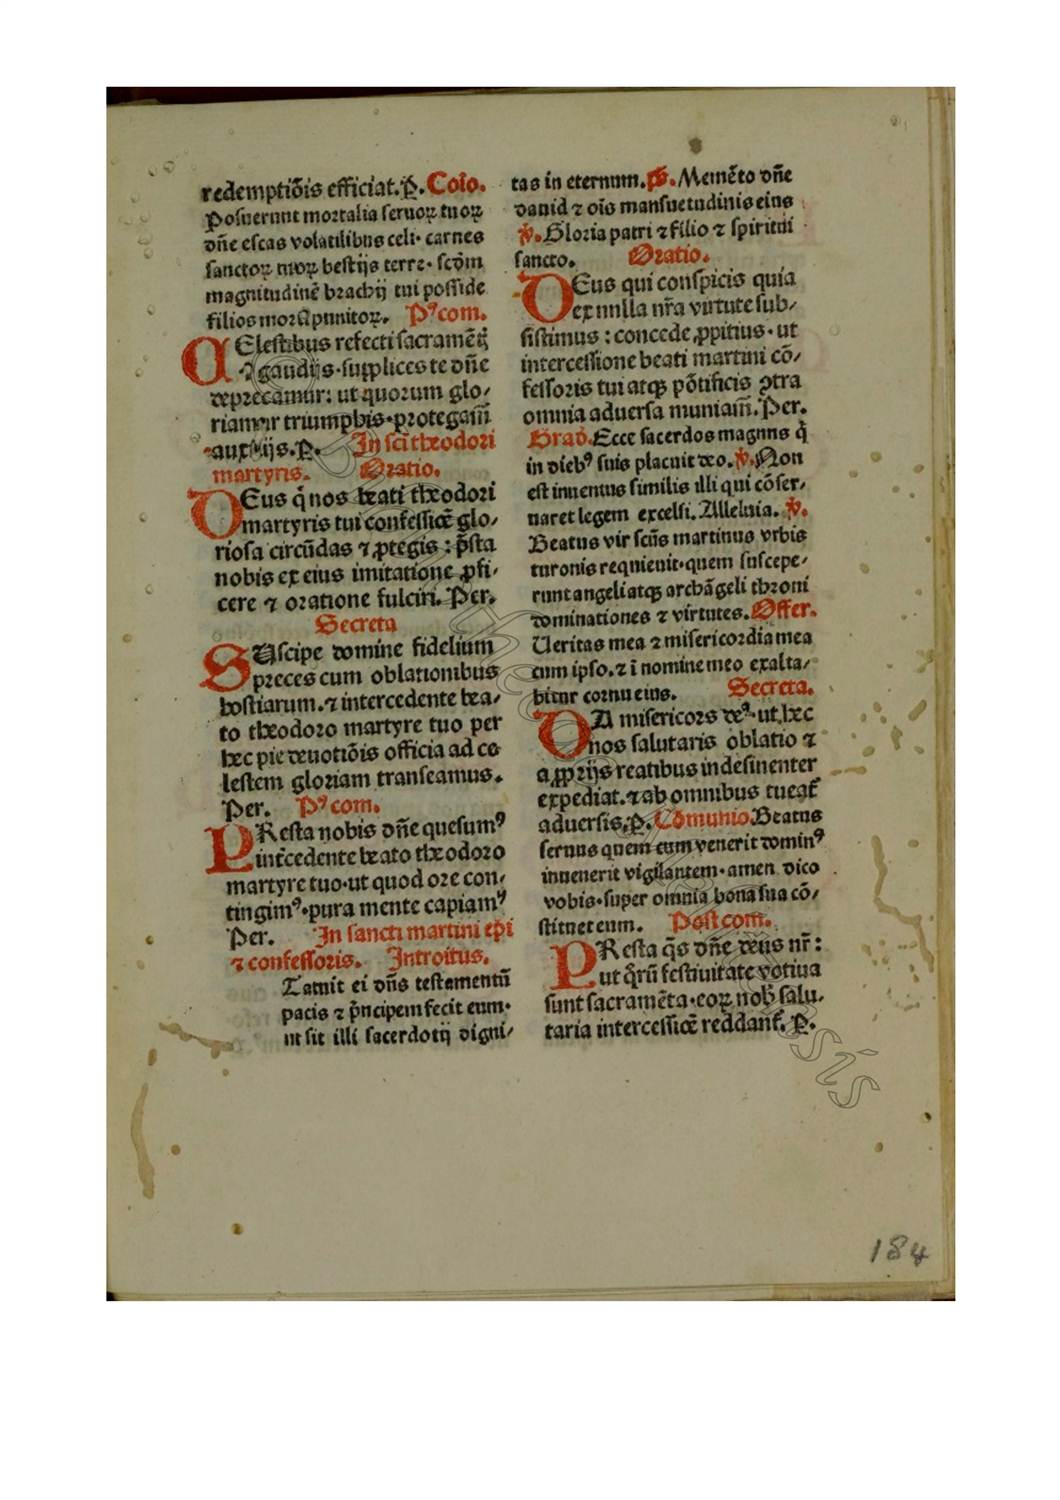 redemptiõis efficiat. P̱. Coĩo.
Posuerunt mortalia seruoꝝ tuoꝝ
dñe escas volatilibus celi· carnes
sanctoꝝ tuoꝝ bestijs terre· scd̃m
magnitudinẽ brachij tui posside
filios punitoꝝ. Pꝰ com.
CElestibus refecti sacramẽtꝭ
⁊ gaudijs· supplices te dñe
deprecamur: ut quorum glo/
riamur triumphis· protegam̃
auxilijs. P̱. In scĩ theodori
martyris. Oratio.
DEus q̇ nos beati theodori
martyris tui confessiõe glo/
riosa circũdas ⁊ ꝓtegis : p̃sta
nobis ex eius imitatione ꝓfi/
cere ⁊ oratione fulciri. Per.
Secreta
SUscipe domine fidelium
preces cum oblationibus
hostiarum. ⁊ intercedente bea/
to theodoro martyre tuo per
hec pie deuotiõis officia ad ce
lestem gloriam transeamus.
Per. Pꝰ com.
PResta nobis dñe quesumꝰ
int̃cedente beato theodoro
martyre tuo· ut quod ore con/
tingimꝰ· pura mente capiamꝰ
Per. In sancti martini ep̃i
⁊ confessoris. Introitus.
Tatuit ei dñs testamentũ
pacis ⁊ p̃ncipem fecit eum·
ut sit illi sacerdotij digni/
tas in eternum. p̃s. Memẽto dñe
dauid ⁊ oĩs mansuetudinis eius
v̇. Gloria patri ⁊ filio ⁊ spiritui
sancto. Oratio.
DEus qui conspicis quia
ex nulla nr̃a virtute sub/
sistimus : concede ꝓpitius· ut
intercessione beati martini cõ/
fessoris tui atqꝫ põtificis ꝯtra
omnia aduersa muniam̃. Per.
Grad̃. Ecce sacerdos magnus q̇
in diebꝰ suis placuit deo. v̇. Non
est inuentus similis illi qui cõser/
uaret legem excelsi. Alleluia. v̇.
Beatus vir scũs martinus vrbis
turonis requieuit· quem suscepe/
runt angeli atqꝫ archãgeli throni
dominationes ⁊ virtutes. Offer.
Ueritas mea ⁊ misericordia mea
cum ipso. ⁊ ĩ nomine meo exalta/
bitur cornu eius. Secreta.
DA misericors deꝰ· ut hec
nos salutaris oblatio ⁊
a ꝓprijs reatibus indesinenter
expediat. ⁊ ab omnibus tueat̃
aduersis. P̱. Cõmunio. Beatus
seruus quem cum venerit dominꝰ
inuenerit vigilantem· amen dico
vobis· super omnia bona sua cõ/
stituet eum. Post com.
PResta q̃s dñe deus nr̃ :
ut q̃rũ festiuitate votiua
sunt sacramẽta· eoꝝ nob̃ salu/
taria intercessiõe reddant̃. P̱.
184